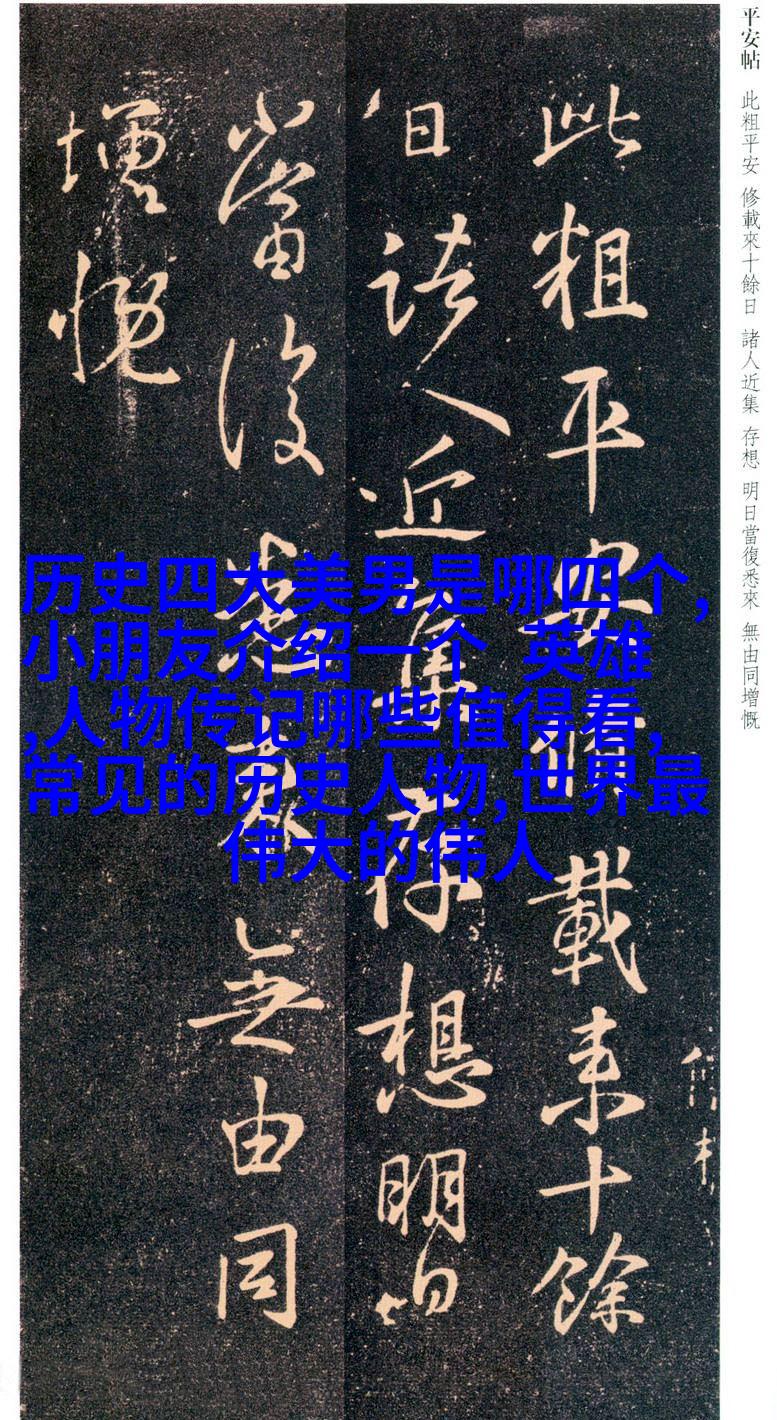 平安帖 此粗平安 修載來十餘日 諸人近集 存想 明日當復悉來 無由同增慨
此粗平安修載来十餘
日諸人近集存想明日
當復悉来無由同
增慨
历史四大美男是哪四个,
小朋友介绍一个 英雄
,人物传记哪些值得看,
常见的历史人物,世界最
伟大的伟人